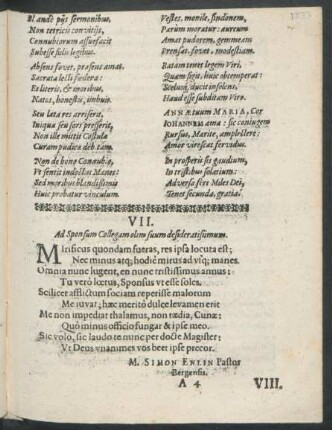 Blandè pijs sermonibus,
Non tetricis convitijs,
Connubiorum assuefacit
Subesse sese legibus.
Absens fovet, præsens amat,
Sacrata lecti fœdera:
Et literis, & moribus,
Natos, honestis, imbuit.
Seu læta res arriserit,
Iniqua seu sors presserit,
Non ille mittit
Curam pudicæ deb tam.
Non de bono Conaubio,
Sed moribus blandissimis
Huic probatur vinculum.
Vestes, monile, sindonem,
Parùm moratur: aureum
Amat pudorem, gemmeam
Prensat, fovet, modestiam.
Ratam tenet legem Viri,
Quàm segis, huic obtemperat:
Scelus, ducit insolens,
Haud esse subditam Viro.
ANNÆ tuum MARIA, Cor
IOHANNEM ama: sic conjugem
Rursus, Marite, amplectere:
Amor virescat servidus.
In prosperis sis gaudium,
In tristibus solarium:
Adversa fers Miles Dei,
Tenet secunda, gratia.
VII.
Ad Sponsum Collegam olim suum desideratissimum.
Mirificus quondam fueras, res ipsa locuta est;
Nec minus atq; hodiè mirus ad usq; manes.
Omnia nunc lugent, en nunc tristissimus annus:
Tu verò lætus, Sponsus ut esse soles.
Scilicet afflictum sociam reperisse malorum
Me juvat; hæc meritò dulce levamen erit
Me non impediat thalamus, non tædia, Cunæ:
Quò minus officio fungar & ipse meo.
Sic volo, sic laudo te nunc per docte Magister:
Ut Deus unanimes vos beet ipse precor.
M. SIMON ENLIN Pastor
Bergensis.
A 4
VIII.